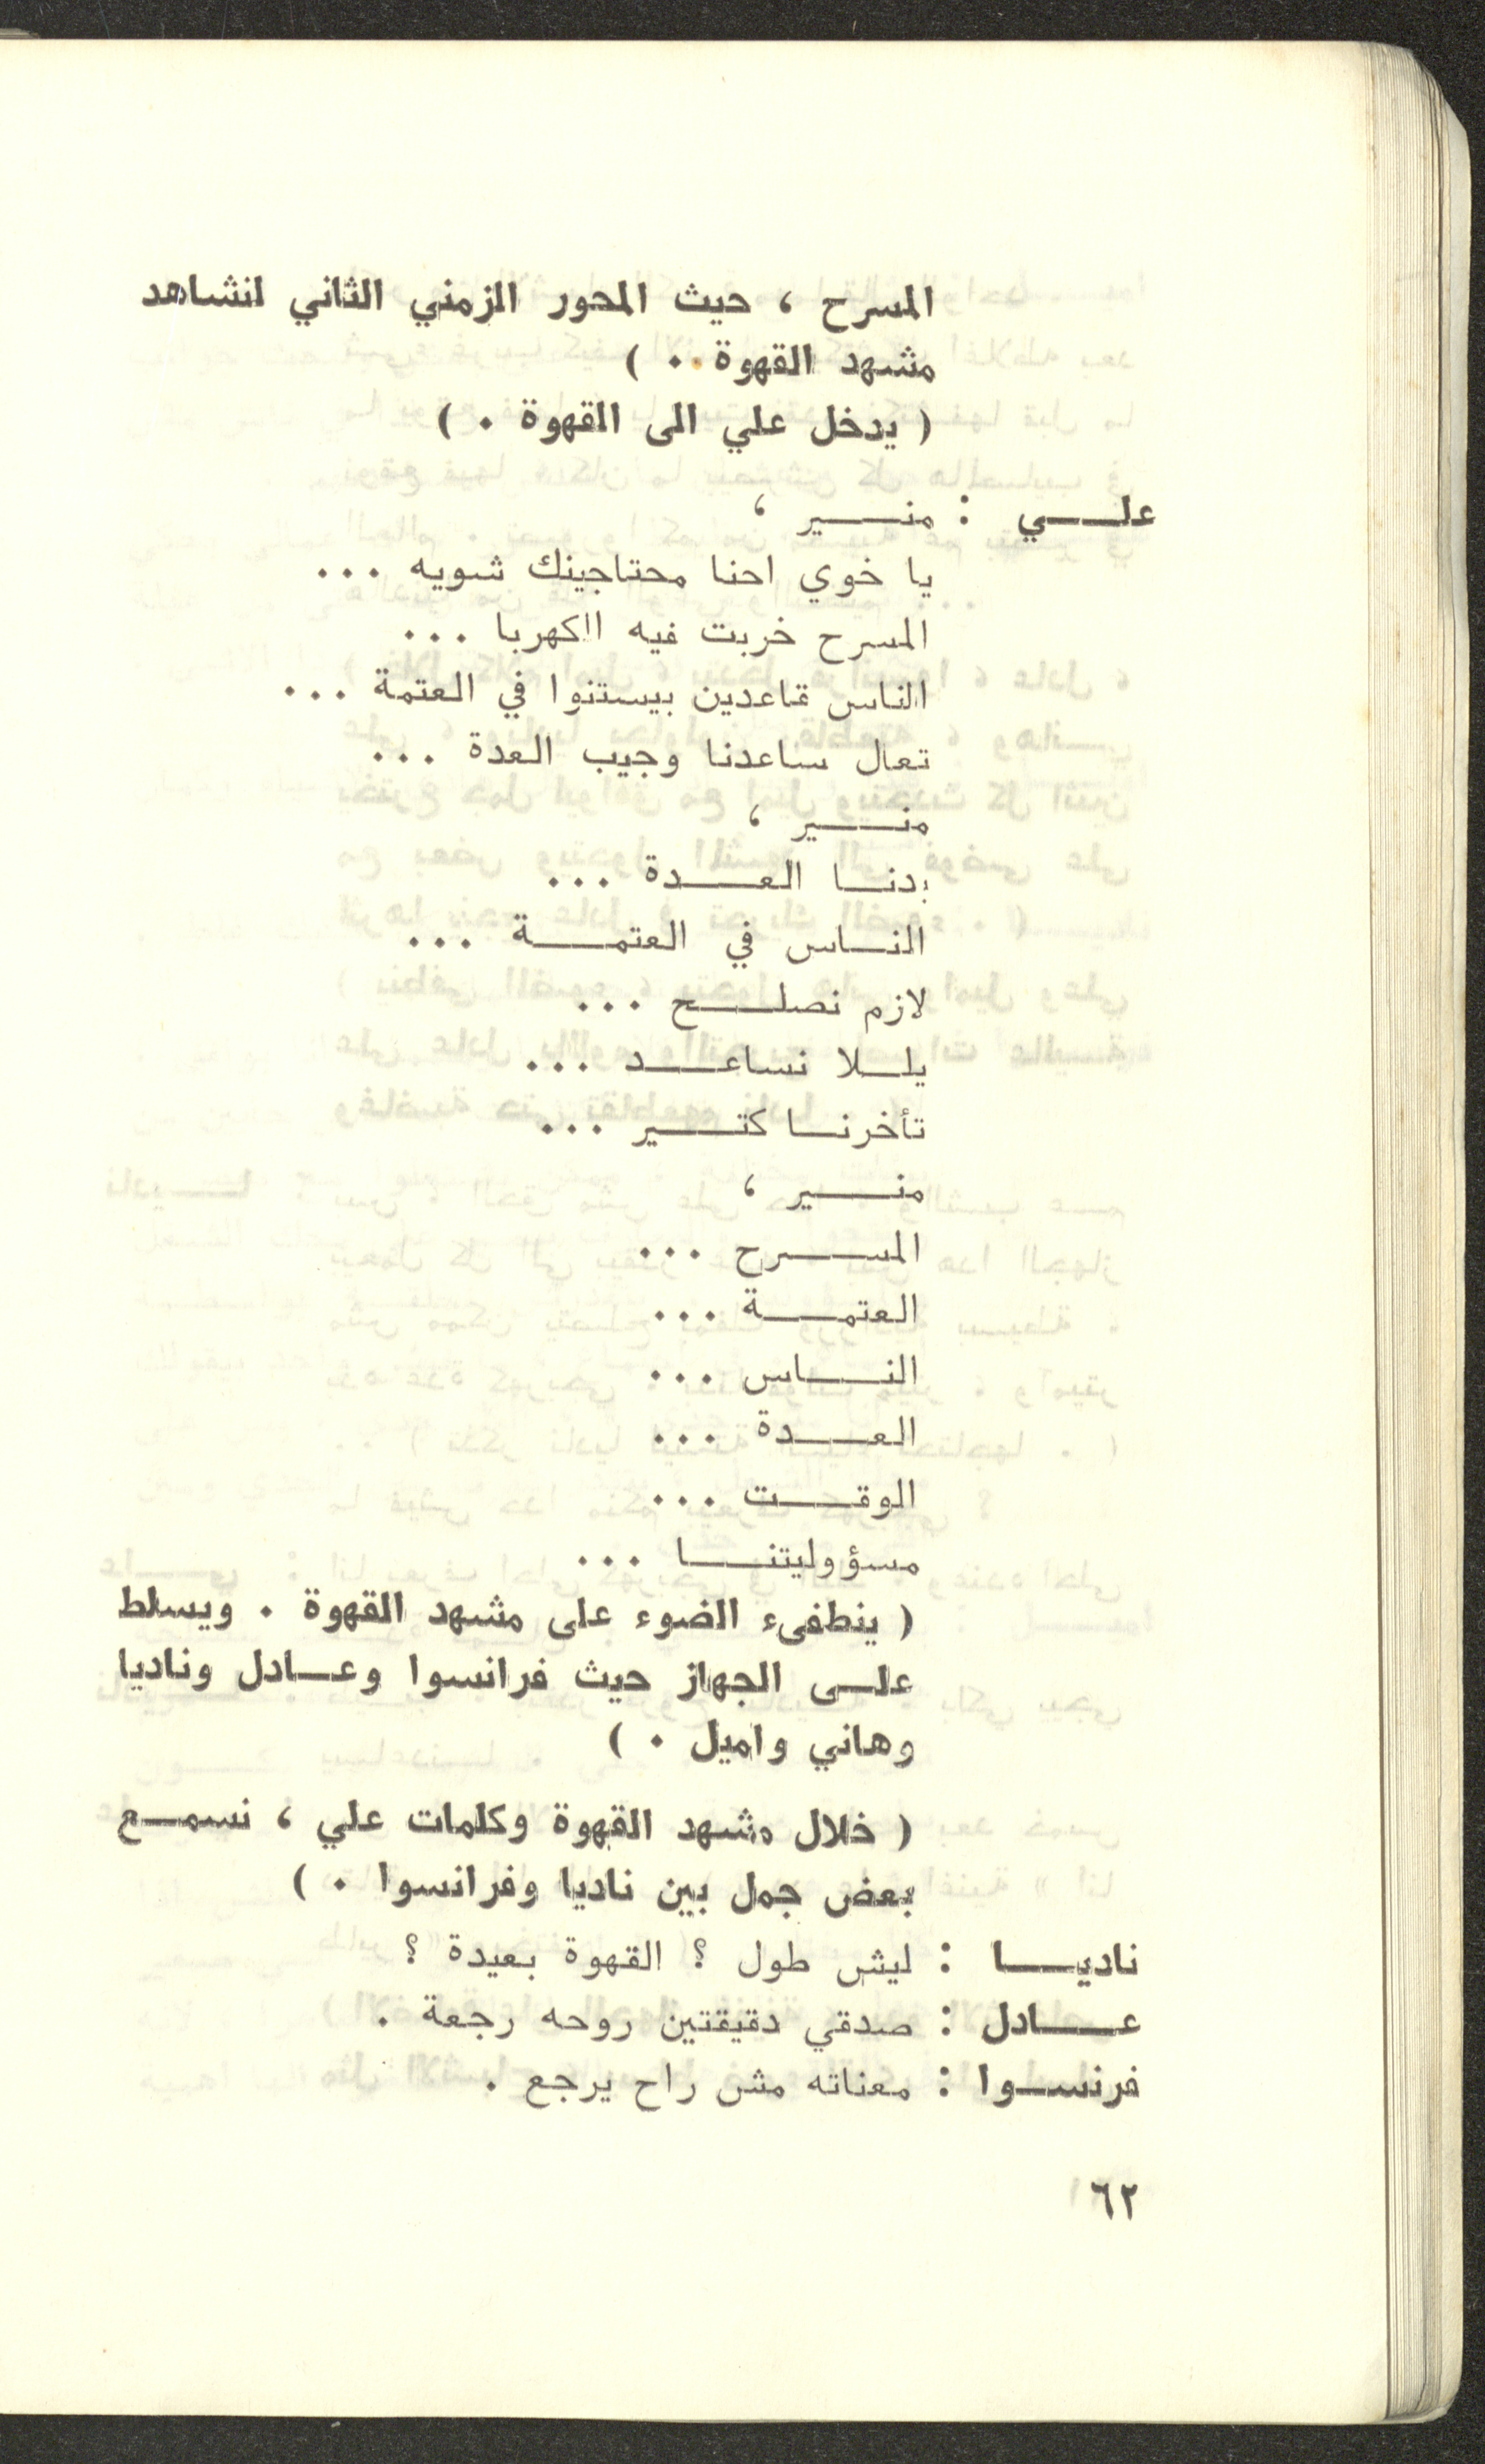 المسرح ، حيث المحور الزمني الثاني لنشاهد
مشهد القهوة . . )
( يدخل علي الى القهوة . )
علـــي : منـــير ،
يا خوي احنا محتاجينك شويه . . .
المسرح خربت فيه الكهربا . . .
الناس قاعدين بيستنوا في العتمة . . .
تعال ساعدنا وجيب العدة . . .
منـــير ،
بدنـا العـــدة . . .
النــاس في العتمـــة . . .
لازم نصلـــح . . .
يلــلا نساعـــد . . .
تأخرنــا كتـــير . . .
منـــير ،
المســـرح . . .
العتمـــة . . .
النـــاس . . .
العـــدة . . .
الوقـــت . . .
مسؤوليتنـــا . . .
( ينطفىء الضوء على مشهد القهوة . ويسلط
علــى الجهاز حيث فرانسوا وعــادل وناديا
وهاني واميل . )
( خلال مشهد القهوة وكلمات علي ، نسمــع
بعض جمل بين ناديا وفرانسوا . )
ناديـــا : ليش طول ؟ القهوة بعيدة ؟
عـــادل : صدقي دقيقتين روحه رجعة .
فرنســوا : معناته مش راح يرجع .
٦٢